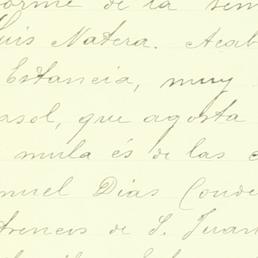 orme de la sem
Luis Natera. Acab
Estancia, muy
asol, que agosta
mula és de las c
muel Dias Conde
trenos de S. Juan